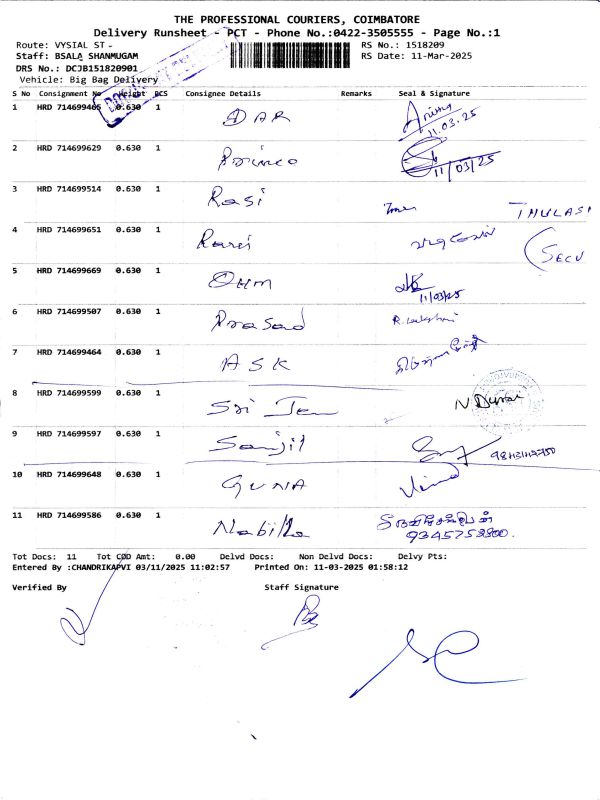 THE PROFESSIONAL COURIERS, COIMBATORE
Delivery Runsheet - PCT - Phone No.:0422-3505555 - Page No.:1
Route: VYSIAL ST - RS No.: 1518209
Staff: BSALA SHANMUGAM RS Date: 11-Mar-2025
DRS No.: DCJB151820901
Vehicle: Big Bag Delivery
S No Consignment No Weight PCS Consignee Details Remarks Seal & Signature
1 HRD 714699405 0.630 1 DAR 11.03.25
2 HRD 714699629 0.630 1 11/03/25
3 HRD 714699514 0.630 1 Rasi THULASI
4 HRD 714699651 0.630 1 (SECU
5 HRD 714699669 0.630 1 OHM 11/03/25
6 HRD 714699507 0.630 1 Prasad
7 HRD 714699464 0.630 1 ASK
8 HRD 714699599 0.630 1 Sri N Durai
9 HRD 714699597 0.630 1 Sanjit
10 HRD 714699648 0.630 1 GUNA
11 HRD 714699586 0.630 1
Tot Docs: 11 Tot COD Amt: 0.00 Delvd Docs: Non Delvd Docs: Delvy Pts:
Entered By :CHANDRIKAPVI 03/11/2025 11:02:57 Printed On: 11-03-2025 01:58:12
Verified By Staff Signature